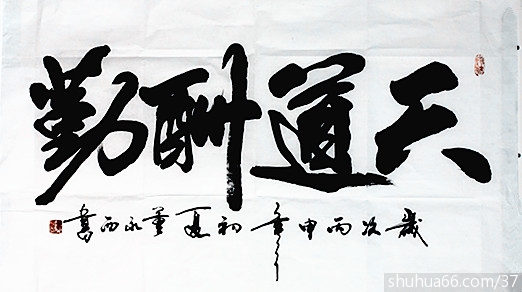 天道酬勤
歲次丙申年初夏董永西書
shuhua66.com/37